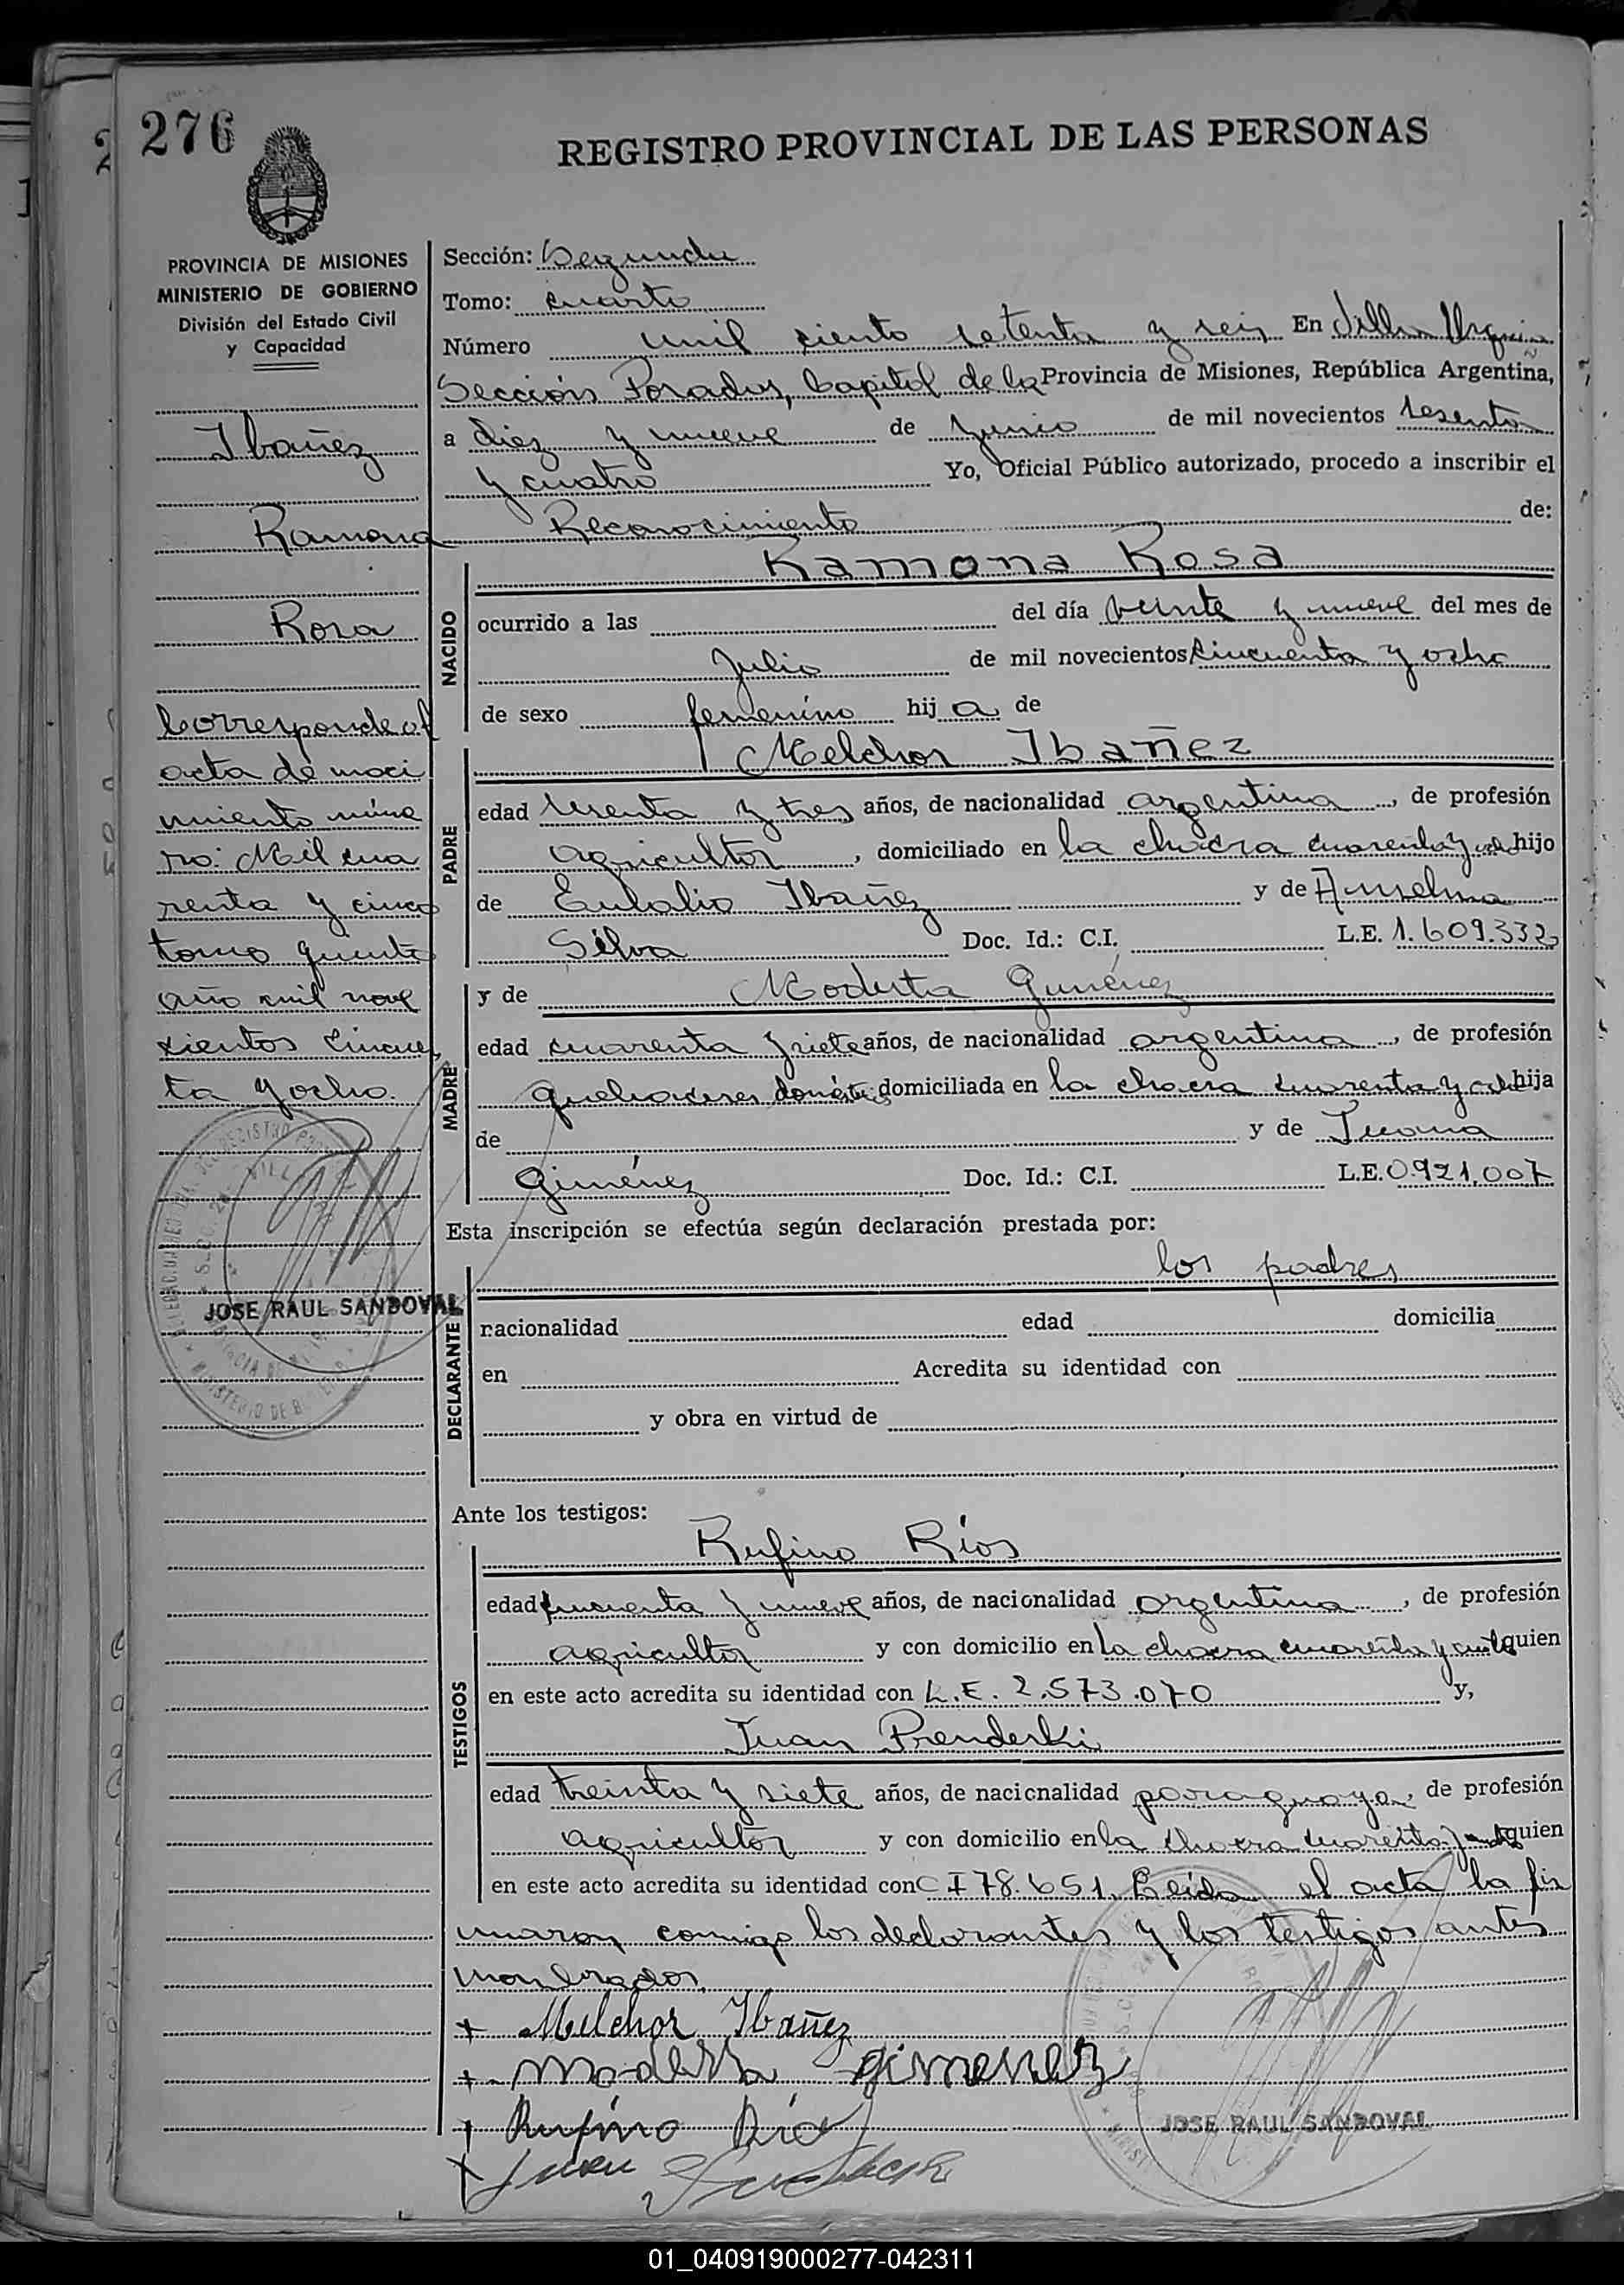 276
REGISTRO PROVINCIAL DE LAS PERSONAS
PROVINCIA DE MISIONES
MINISTERIO DE GOBIERNO
División del Estado Civil
y Capacidad
Ibañez
Ramona
Rosa
Corresponde al
acta de naci
miento núme
ro: Mil cua
renta y cinco
tomo quinto
año mil nove
cientos cincuen
ta y ocho.
JOSE RAUL SANDOVAL
Sección: Segunda
Tomo: cuarto
Número mil ciento setenta y seis En Villa Urquiza
Sección Posadas, Capital de la Provincia de Misiones, República Argentina,
a diez y nueve de Junio de mil novecientos sesenta
y cuatro Yo, Oficial Público autorizado, procedo a inscribir el
Reconocimiento de:
NACIDO
Ramona Rosa
ocurrido a las del día veinte y nueve del mes de
Julio de mil novecientos cincuenta y ocho
de sexo femenino hija de
PADRE
Melchor Ibañez
edad treenta y tres años, de nacionalidad argentina, de profesión
agricultor, domiciliado en la chacra cuarenta y ocho hijo
de Eulalio Ibañez y de Anselma
Silva Doc. Id.: C.I. L.E. 1.609.332
MADRE
y de Modesta Giménez
edad cuarenta y siete años, de nacionalidad argentina, de profesión
quehaceres domésticos domiciliada en la chacra cuarenta y ocho hija
de y de Juana
Giménez Doc. Id.: C.I. L.E. 0.921.007
Esta inscripción se efectúa según declaración prestada por:
DECLARANTE
los padres
nacionalidad edad domicilia
en Acredita su identidad con
y obra en virtud de
Ante los testigos:
TESTIGOS
Rufino Ríos
edad cincuenta y nueve años, de nacionalidad argentina, de profesión
agricultor y con domicilio en la chacra cuarenta y quien
en este acto acredita su identidad con L.E. 2.573.070 y,
Juan Prenderki
edad treinta y siete años, de nacionalidad paraguaya, de profesión
agricultor y con domicilio en la chacra cuarenta y quien
en este acto acredita su identidad con C I 78.651. Leída el acta la fir
maron comigo los declarantes y los testigos antes
nombrados.
+ Melchor Ibañez
+ modesta gimenez
+ Rufino Rios
+ Juan
JOSE RAUL SANDOVAL
01_040919000277-042311